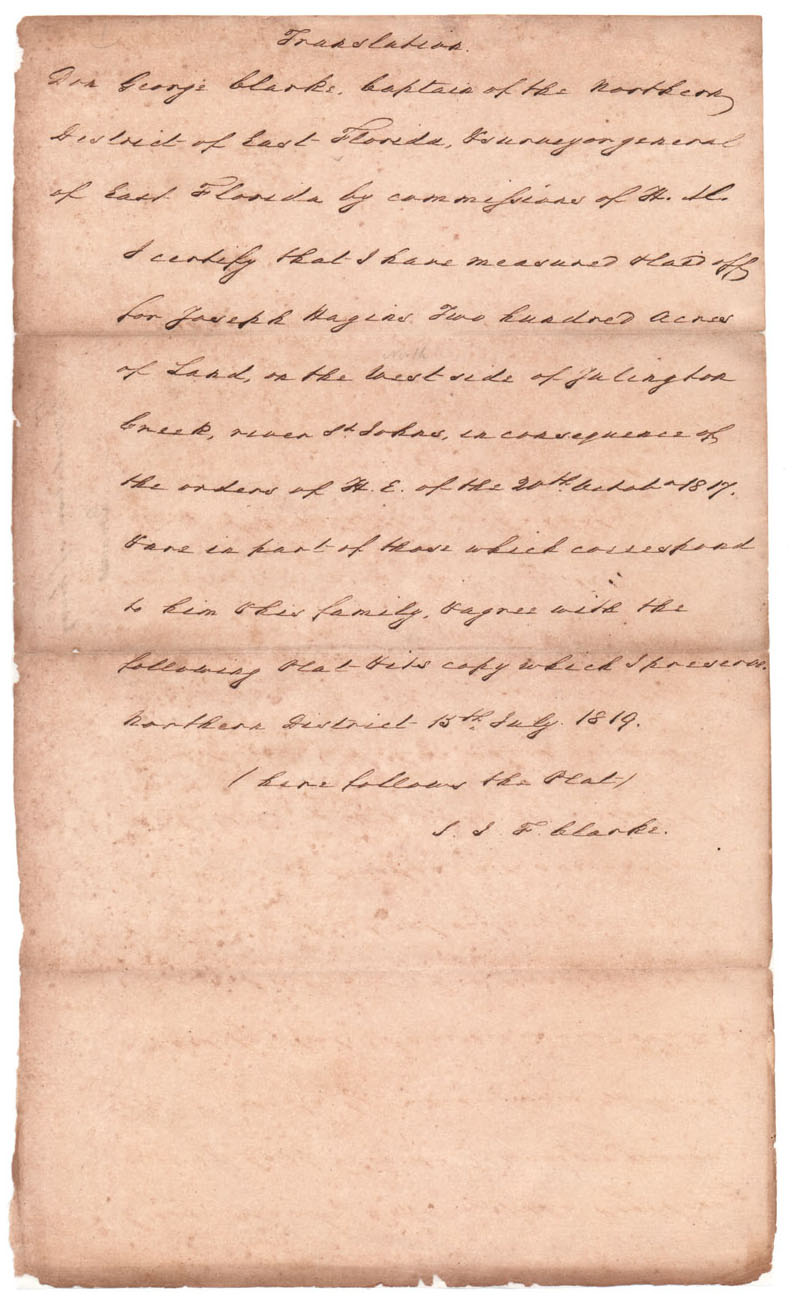 Translation.
Don George Clarke, Captain of the Northern
District of East Florida, & surveyor general
of East Florida by commissions of H. M.
I certify that I have measured & laid off
for Joseph Hagins Two hundred Acres
North
of Land, on the West side of Julington
Creek, river St. Johns, in consequence of
the orders of H. E. of the 20th. Octobr 1817.
& are in part of those which correspond
to him & his family, & agree with the
following Plat & its copy which I preserve.
Northern District 15th. July. 1819.
(here follows the Plat)
Clarke.